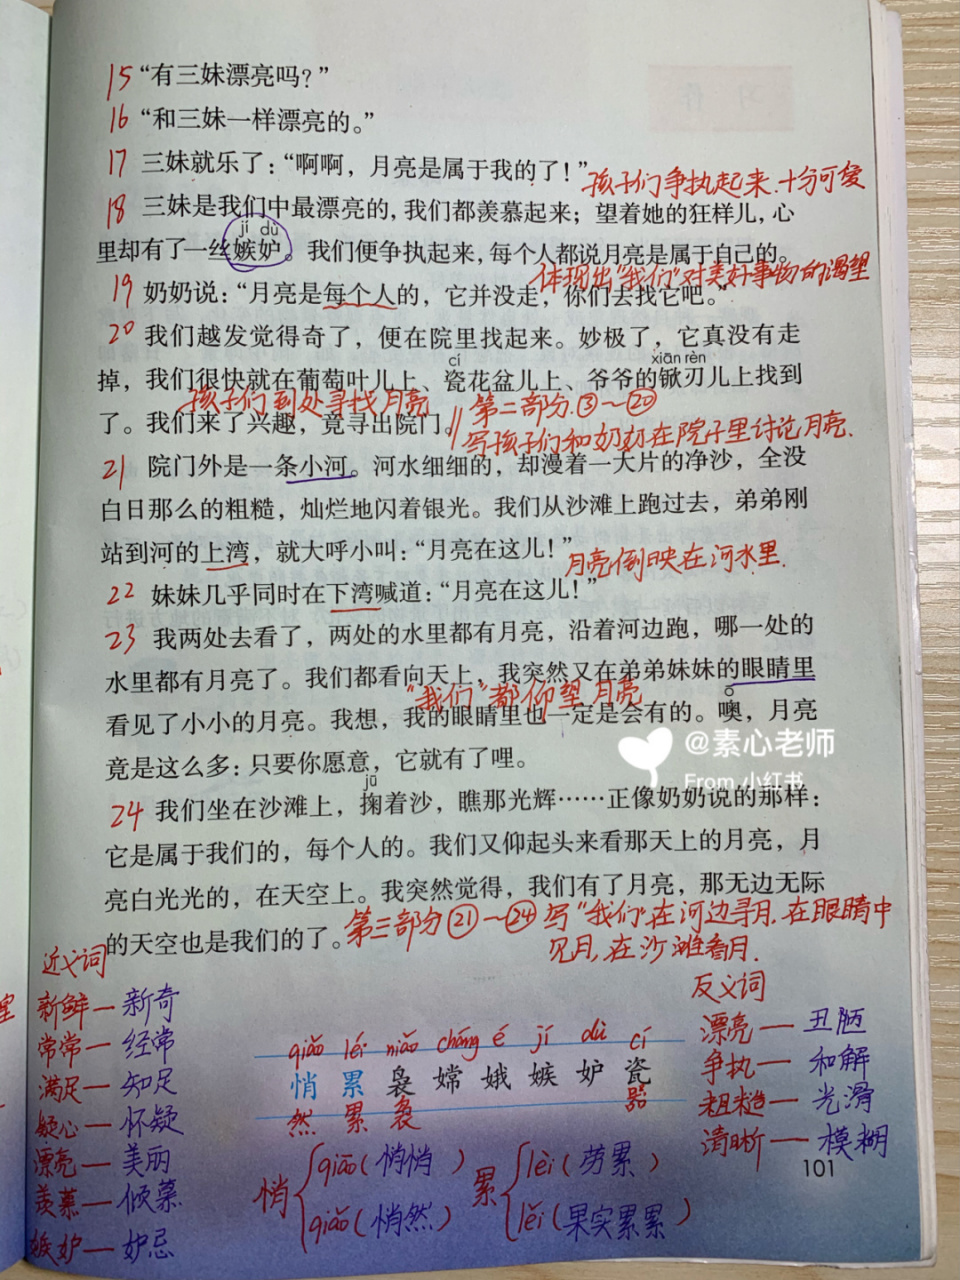 15 “有三妹漂亮吗？”
16 “和三妹一样漂亮的。”
17 三妹就乐了：“啊啊，月亮是属于我的了！”
孩子们争执起来，十分可爱
18 三妹是我们中最漂亮的，我们都羡慕起来；望着她的狂样儿，心
jí dù
里却有了一丝嫉妒。我们便争执起来，每个人都说月亮是属于自己的。
体现出“我们”对美好事物的渴望
19 奶奶说：“月亮是每个人的，它并没走，你们去找它吧。”
20 我们越发觉得奇了，便在院里找起来。妙极了，它真没有走
cí xiān rèn
掉，我们很快就在葡萄叶儿上、瓷花盆儿上、爷爷的锨刃儿上找到
孩子们到处寻找月亮
第二部分③～⑳
了。我们来了兴趣，竟寻出院门。
写孩子们和奶奶在院子里讨论月亮.
21 院门外是一条小河。河水细细的，却漫着一大片的净沙，全没
白日那么的粗糙，灿烂地闪着银光。我们从沙滩上跑过去，弟弟刚
站到河的上湾，就大呼小叫：“月亮在这儿！”
月亮倒映在河水里.
22 妹妹几乎同时在下湾喊道：“月亮在这儿！”
23 我两处去看了，两处的水里都有月亮，沿着河边跑，哪一处的
水里都有月亮了。我们都看向天上，我突然又在弟弟妹妹的眼睛里
“我们”都仰望月亮
ō
看见了小小的月亮。我想，我的眼睛里也一定是会有的。噢，月亮
竟是这么多：只要你愿意，它就有了哩。
@素心老师
From 小红书
jū
24 我们坐在沙滩上，掬着沙，瞧那光辉……正像奶奶说的那样：
它是属于我们的，每个人的。我们又仰起头来看那天上的月亮，月
亮白光光的，在天空上。我突然觉得，我们有了月亮，那无边无际
的天空也是我们的了。
第三部分㉑～㉔写“我们”在河边寻月，在眼睛中
见月，在沙滩看月.
近义词
新鲜—新奇
常常—经常
满足—知足
疑心—怀疑
漂亮—美丽
羡慕—倾慕
嫉妒—妒忌
qiǎo léi niǎo cháng é jí dù cí
悄 累 袅 嫦 娥 嫉 妒 瓷
然 累 袅 器
悄
qiāo（悄悄）
qiǎo（悄然）
累
lèi（劳累）
léi（果实累累）
反义词
漂亮—丑陋
争执—和解
粗糙—光滑
清晰—模糊
101